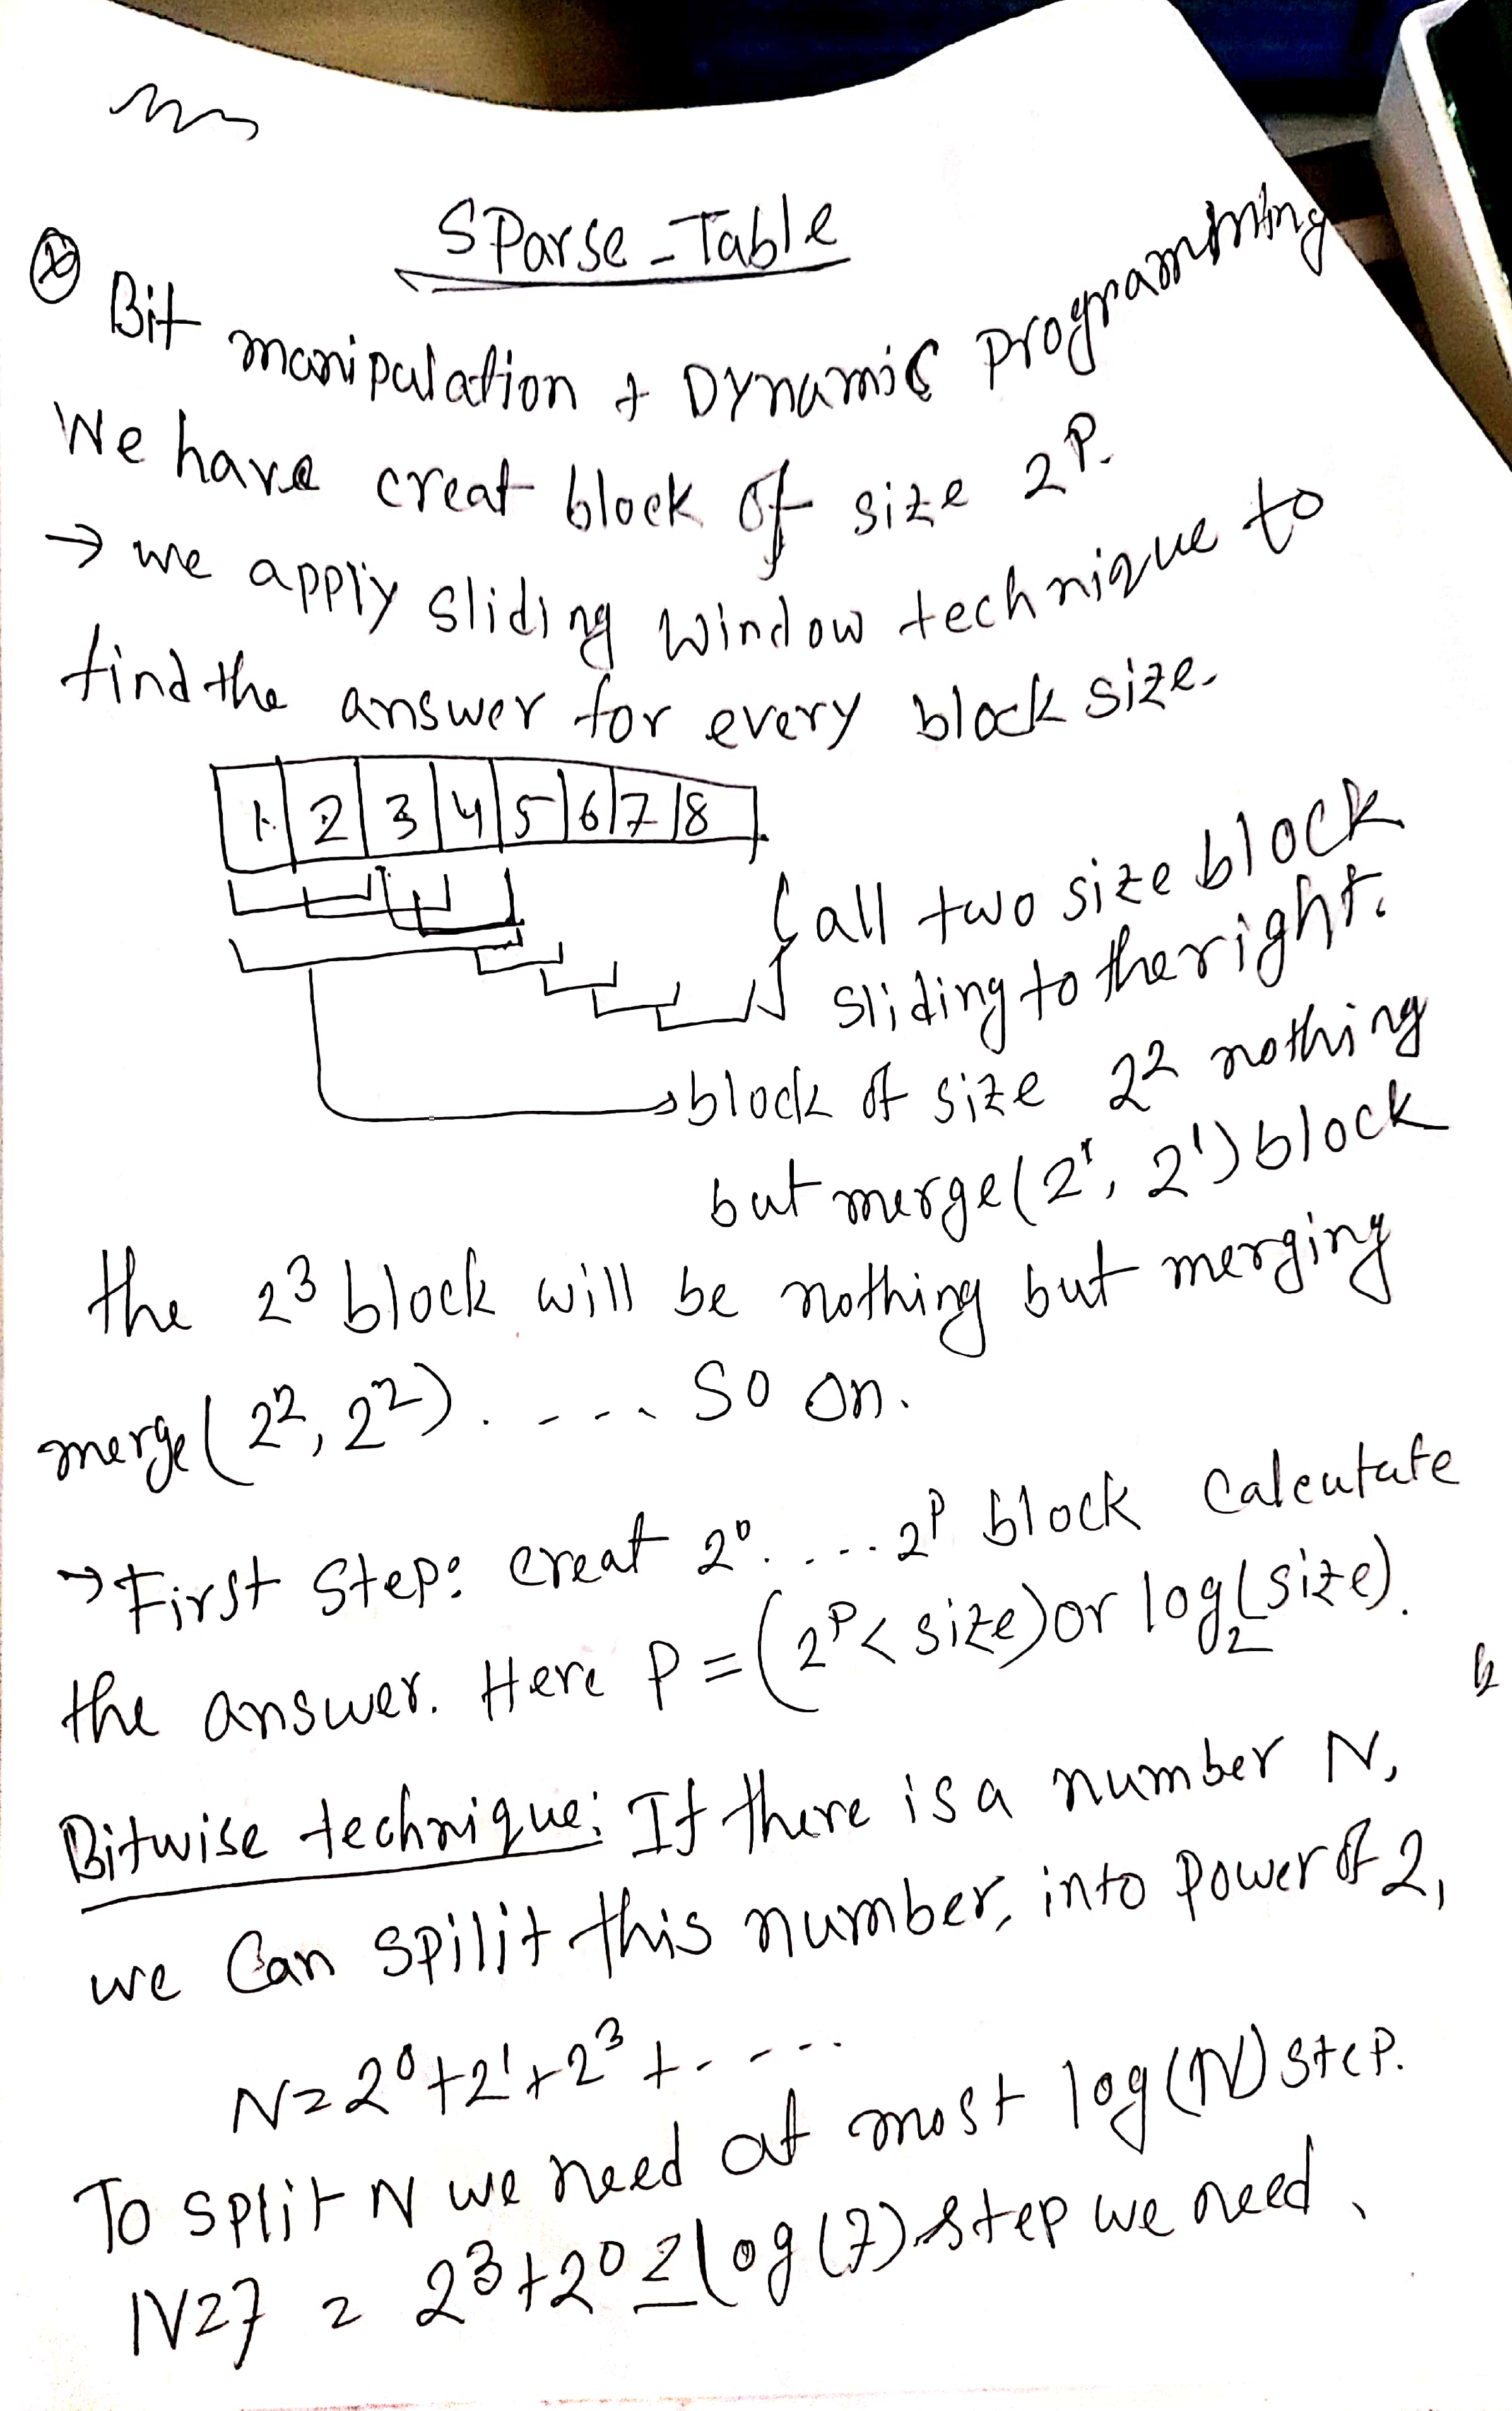 SParse-Table
Bit manipulation + Dynamic programming
We have creat block of size 2^P.
→ we apply sliding window technique to
find the answer for every block size.
1 2 3 4 5 6 7 8
all two size block
sliding to the right.
block of size 2^2 nothing
but merge(2^1, 2^1) block
the 2^3 block will be nothing but merging
merge(2^2, 2^2). - - - - So on.
→ First Step: creat 2^0. . - - . 2^P block Calculate
the answer. Here P = (2^P < size) or log_2(size).
Bitwise technique: If there is a number N,
we Can spilit this number, into Power of 2,
N = 2^0 + 2^1 + 2^3 + - - - -
To split N we need at most log(N) step.
N=7 = 2^3 + 2^0 log(7) step we need.